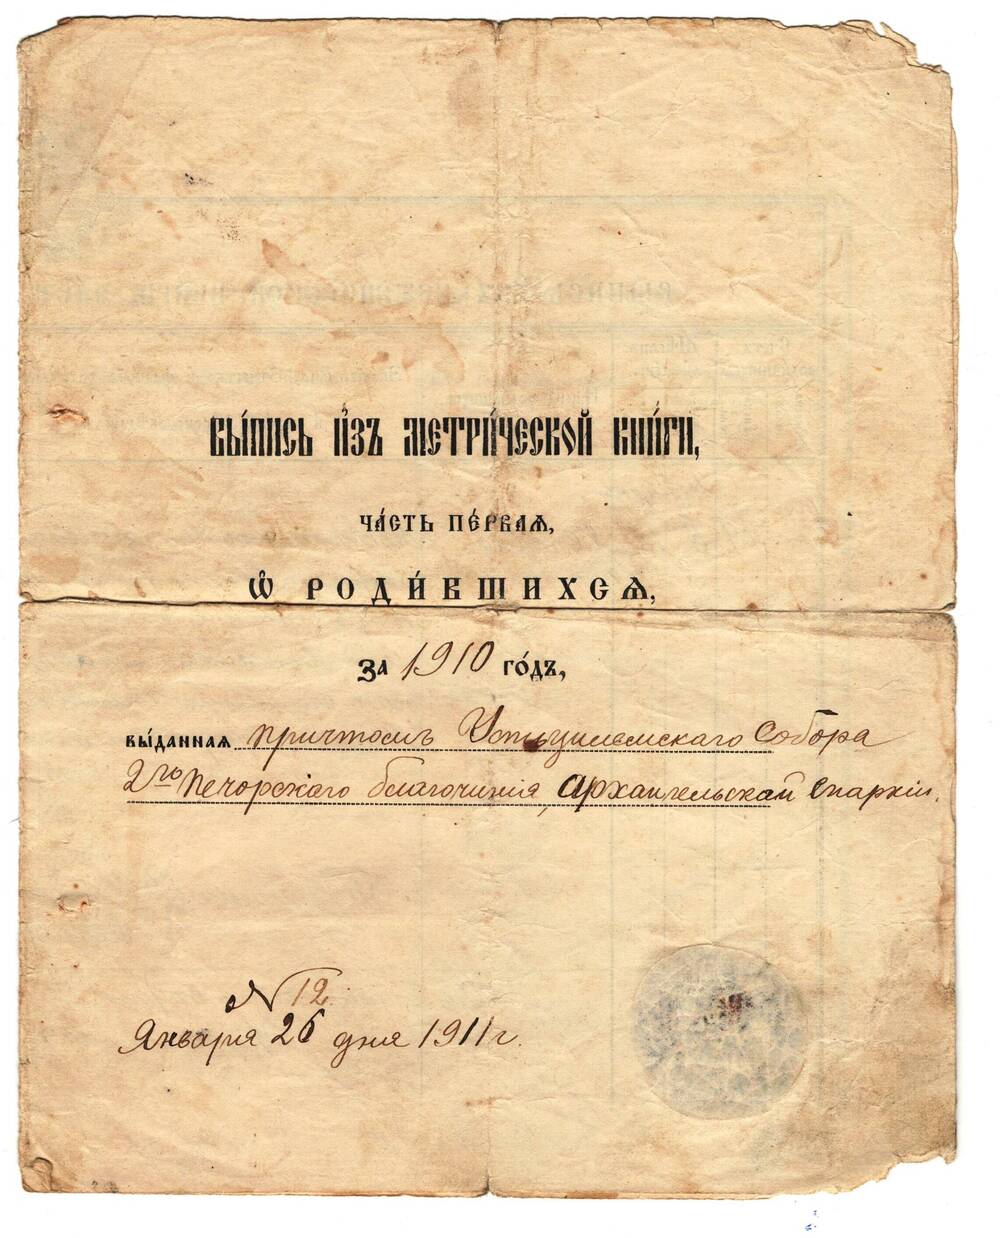 Вы́пись и҆зъ метри́ческой кни́ги,
ча́сть пе́рваѧ,
Ѽ роди́вшихсѧ,
За 1910 го́дъ,
вы́данная причтомъ Устьцилемскаго Собора
2го Печорскаго благочинія, Архангельской Епархіи.
№ 12.
Января 26 дня 1911 г.